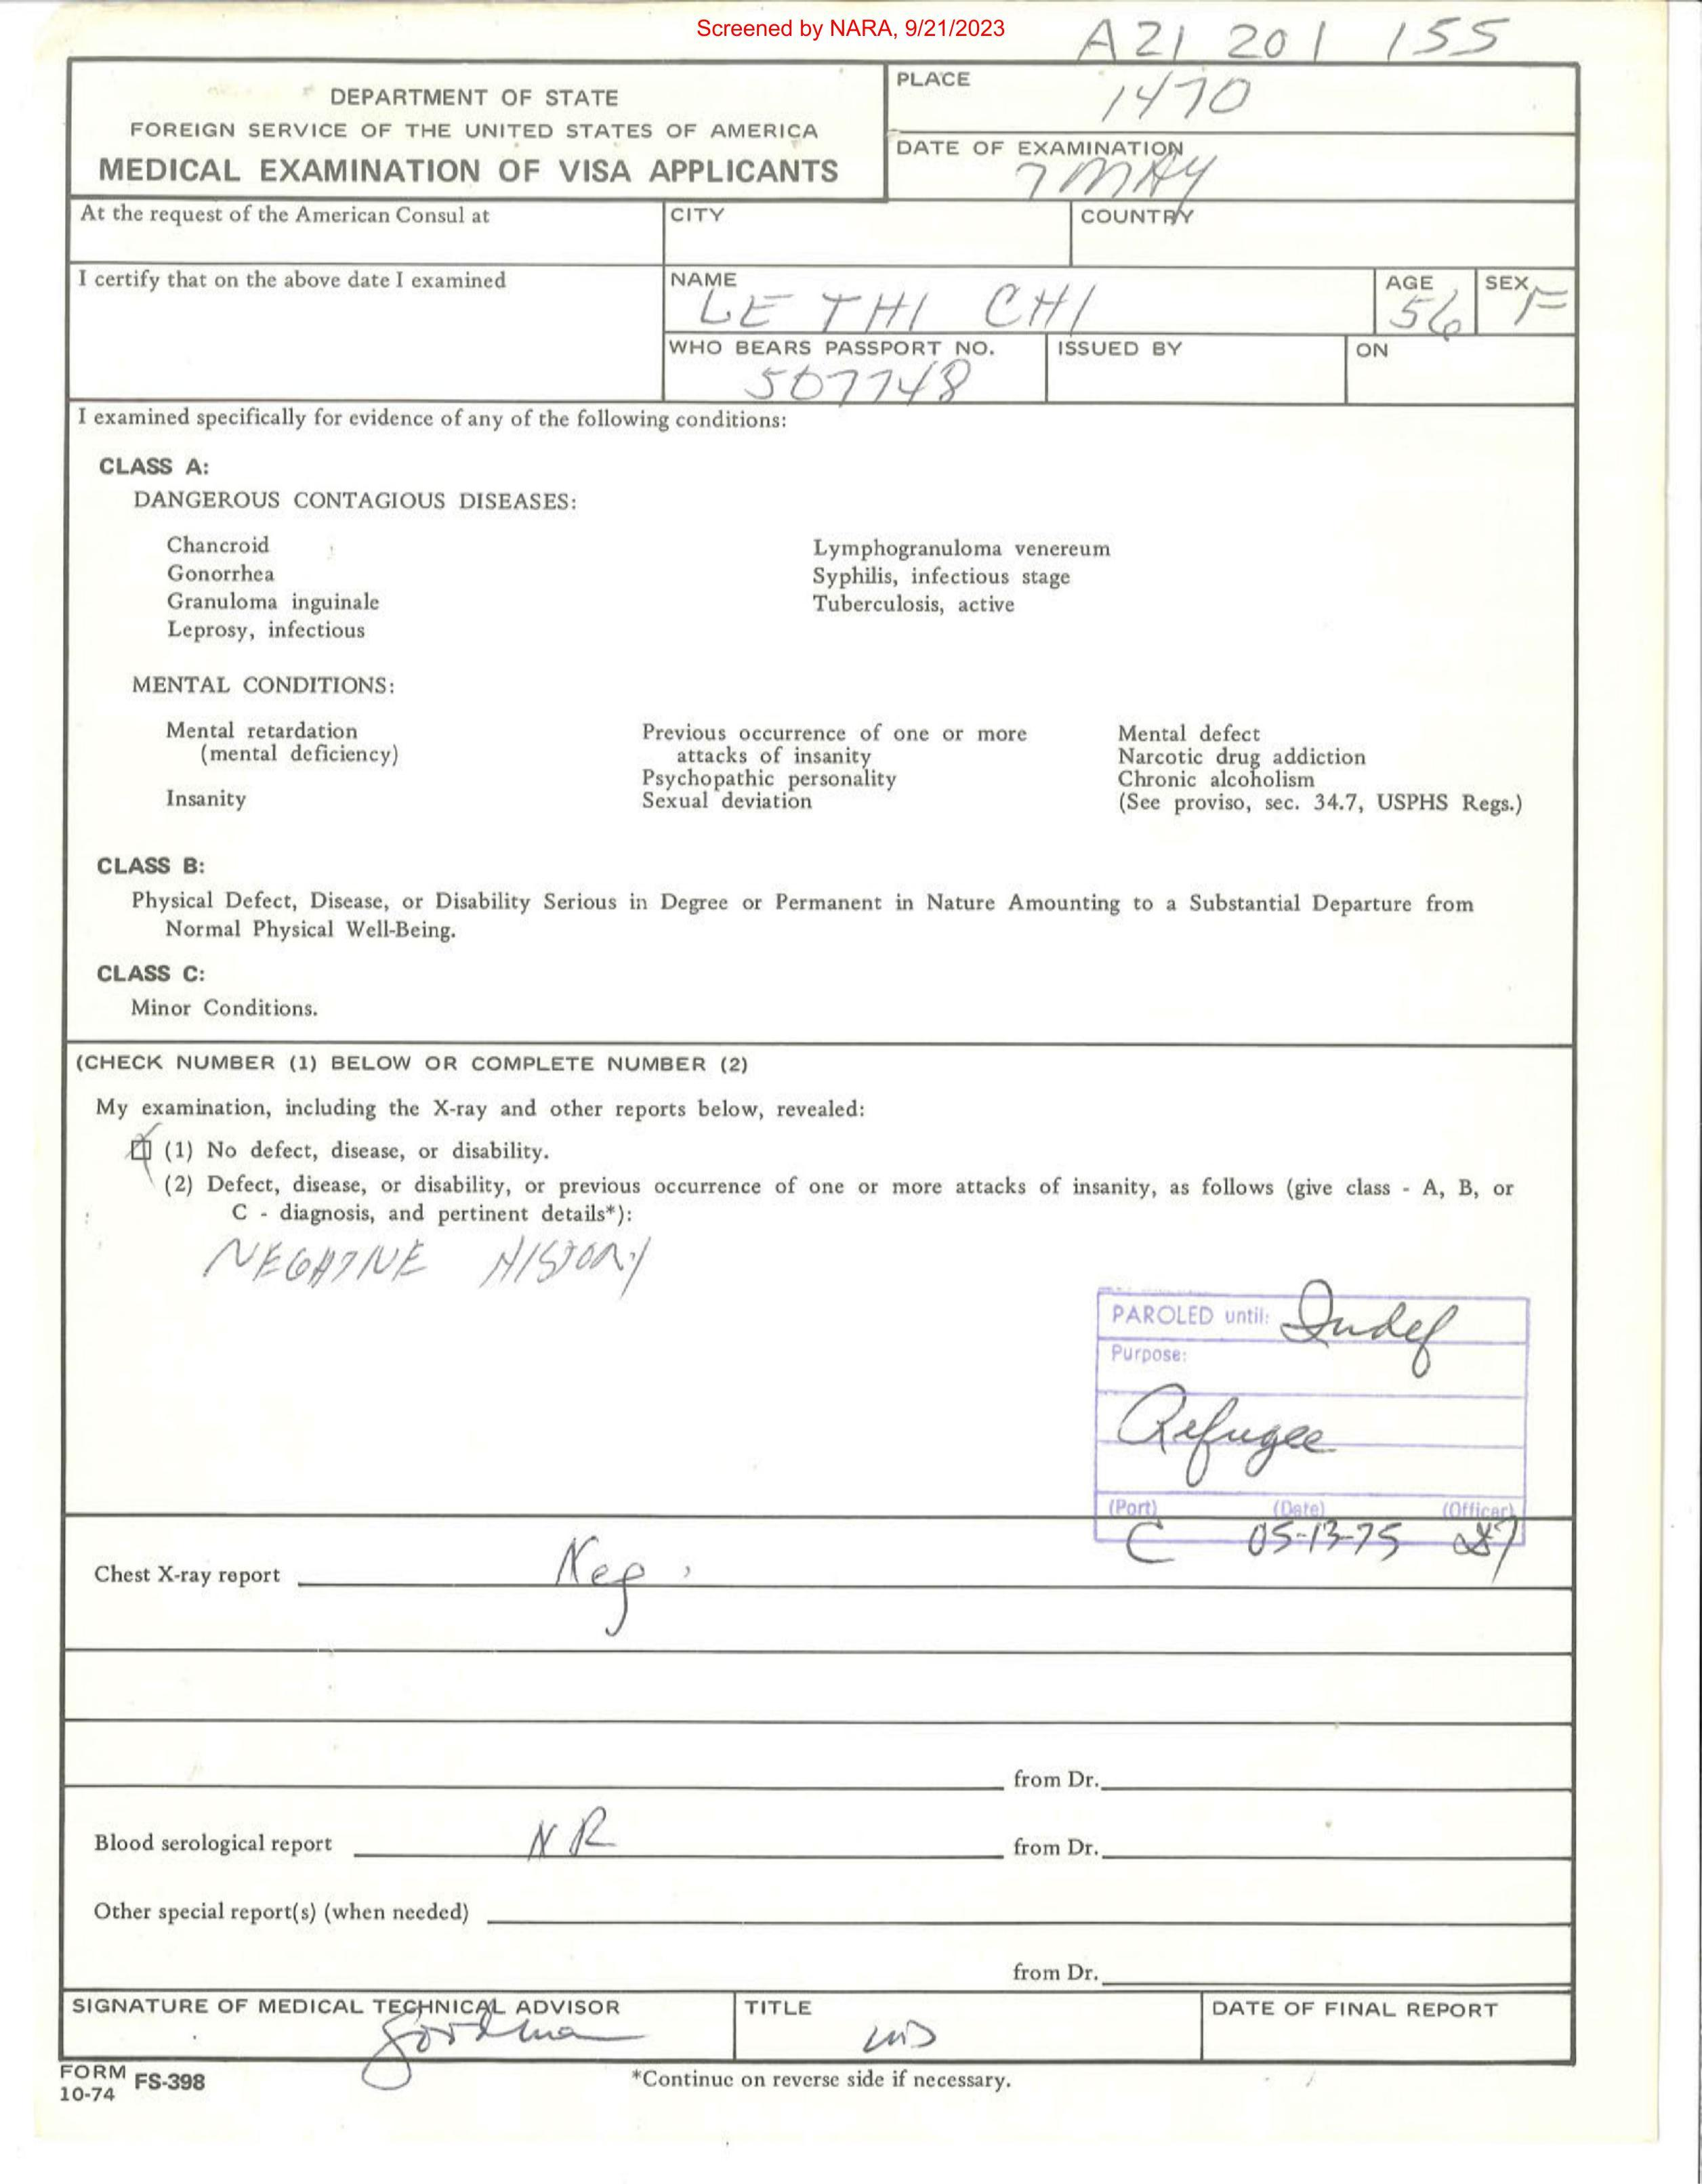 Screened by NARA, 9/21/2023
A21 201 155
DEPARTMENT OF STATE
FOREIGN SERVICE OF THE UNITED STATES OF AMERICA
MEDICAL EXAMINATION OF VISA APPLICANTS
PLACE
1470
DATE OF EXAMINATION
7 MAY
At the request of the American Consul at
CITY
COUNTRY
I certify that on the above date I examined
NAME
LE THI CHI
AGE
56
SEX
F
WHO BEARS PASSPORT NO.
507748
ISSUED BY
ON
I examined specifically for evidence of any of the following conditions:
CLASS A:
DANGEROUS CONTAGIOUS DISEASES:
Chancroid
Gonorrhea
Granuloma inguinale
Leprosy, infectious
Lymphogranuloma venereum
Syphilis, infectious stage
Tuberculosis, active
MENTAL CONDITIONS:
Mental retardation
(mental deficiency)
Insanity
Previous occurrence of one or more
attacks of insanity
Psychopathic personality
Sexual deviation
Mental defect
Narcotic drug addiction
Chronic alcoholism
(See proviso, sec. 34.7, USPHS Regs.)
CLASS B:
Physical Defect, Disease, or Disability Serious in Degree or Permanent in Nature Amounting to a Substantial Departure from
Normal Physical Well-Being.
CLASS C:
Minor Conditions.
(CHECK NUMBER (1) BELOW OR COMPLETE NUMBER (2)
My examination, including the X-ray and other reports below, revealed:
(1) No defect, disease, or disability.
(2) Defect, disease, or disability, or previous occurrence of one or more attacks of insanity, as follows (give class - A, B, or
C - diagnosis, and pertinent details*):
NEGATIVE HISTORY
PAROLED until: Indef
Purpose:
Refugee
(Port) (Date) (Officer)
C 05-13-75
Chest X-ray report Neg.
from Dr.
Blood serological report NR from Dr.
Other special report(s) (when needed)
from Dr.
SIGNATURE OF MEDICAL TECHNICAL ADVISOR
TITLE
MD
DATE OF FINAL REPORT
FORM
10-74 FS-398
*Continue on reverse side if necessary.